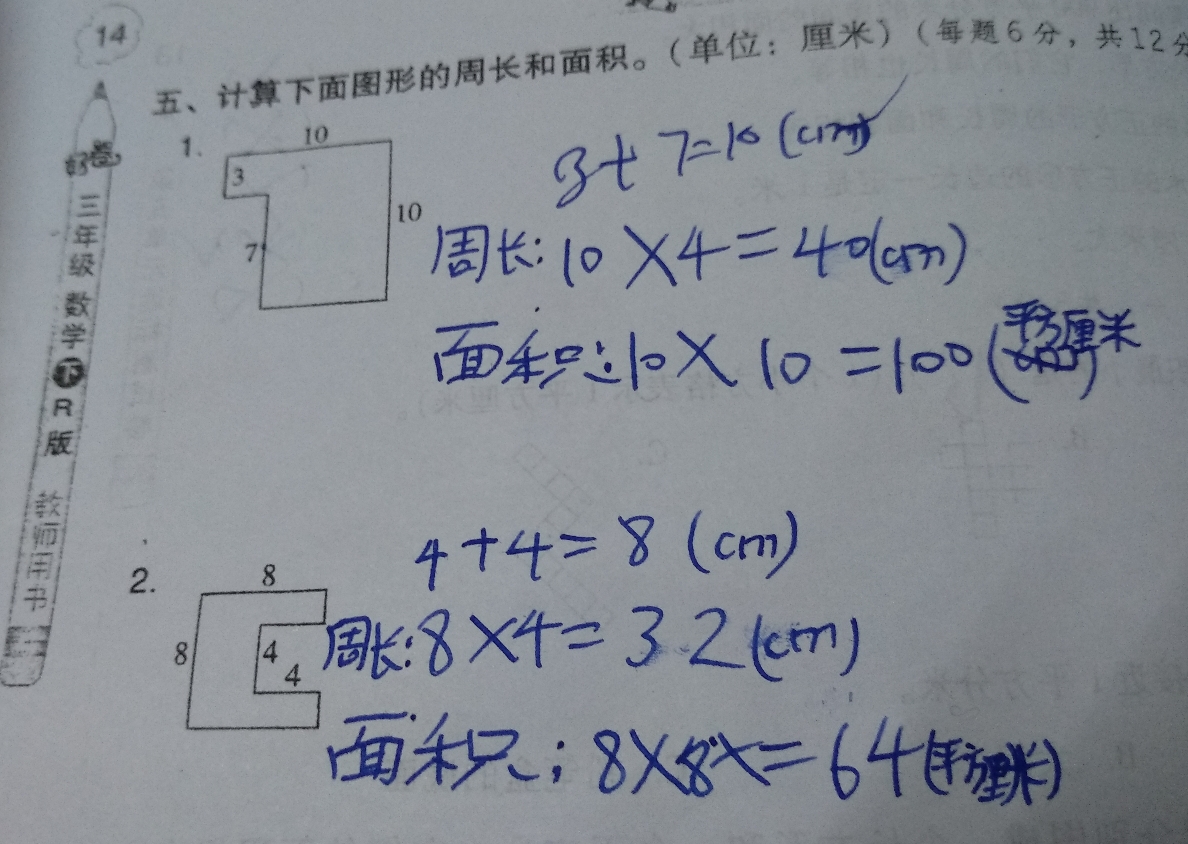 14
五、计算下面图形的周长和面积。(单位：厘米)(每题6分，共12分
1.
10
3
10
7
3+7=10(cm)
周长:10×4=40(cm)
面积:10×10=100(平方厘米
好卷
三年级数学下R版
教师用书
4+4=8(cm)
2.
8
8
4
4
周长:8×4=32(cm)
面积:8×8×=64(平方厘米)